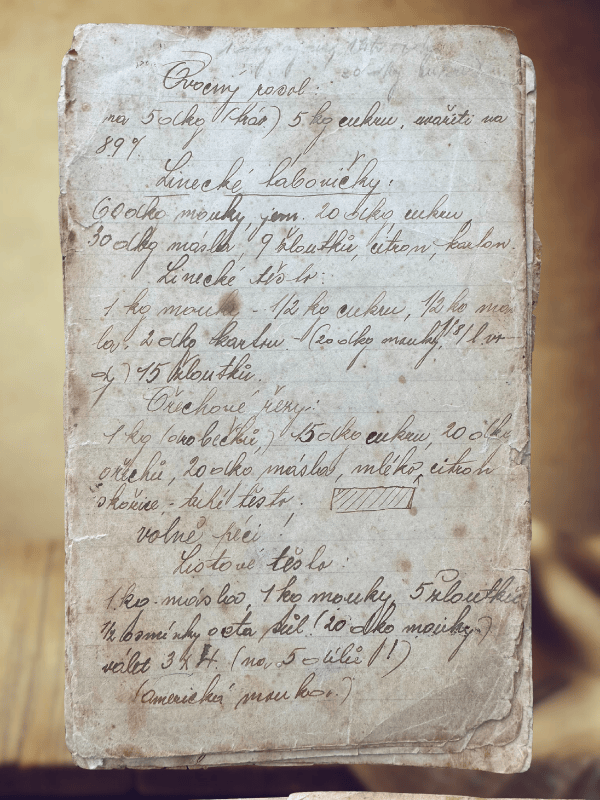 Ovocný rosol:
na 5 dkg (trás.) 5 kg cukru, svařiti na
89%
Linecké bábovičky:
60 dko mouky, jem. 20 dkg cukru,
30 dkg másla, 9 žloutků, citron, karbon.
Linecké těsto:
1 kg mouka - 1/2 ko cukru, 1/2 ko más-
la. 2 dko karbon - (20 dko mouky, 1/8 l vo-
dy) 15 žloutků.
Ořechové řezy:
1 kg (drobečků,) 15 dko cukru, 20 dkg
ořechů, 20 dko másla, mléko, citron
skořice, - tuhé těsto.
volně péci!
Listové těsto:
1 ko. másla, 1 ko mouky, 5 žloutků
1/2 osminky octa sůl! (20 dko mouky.)
válet 3 x 4. (na 5 dílů!)
(americká mouka.)